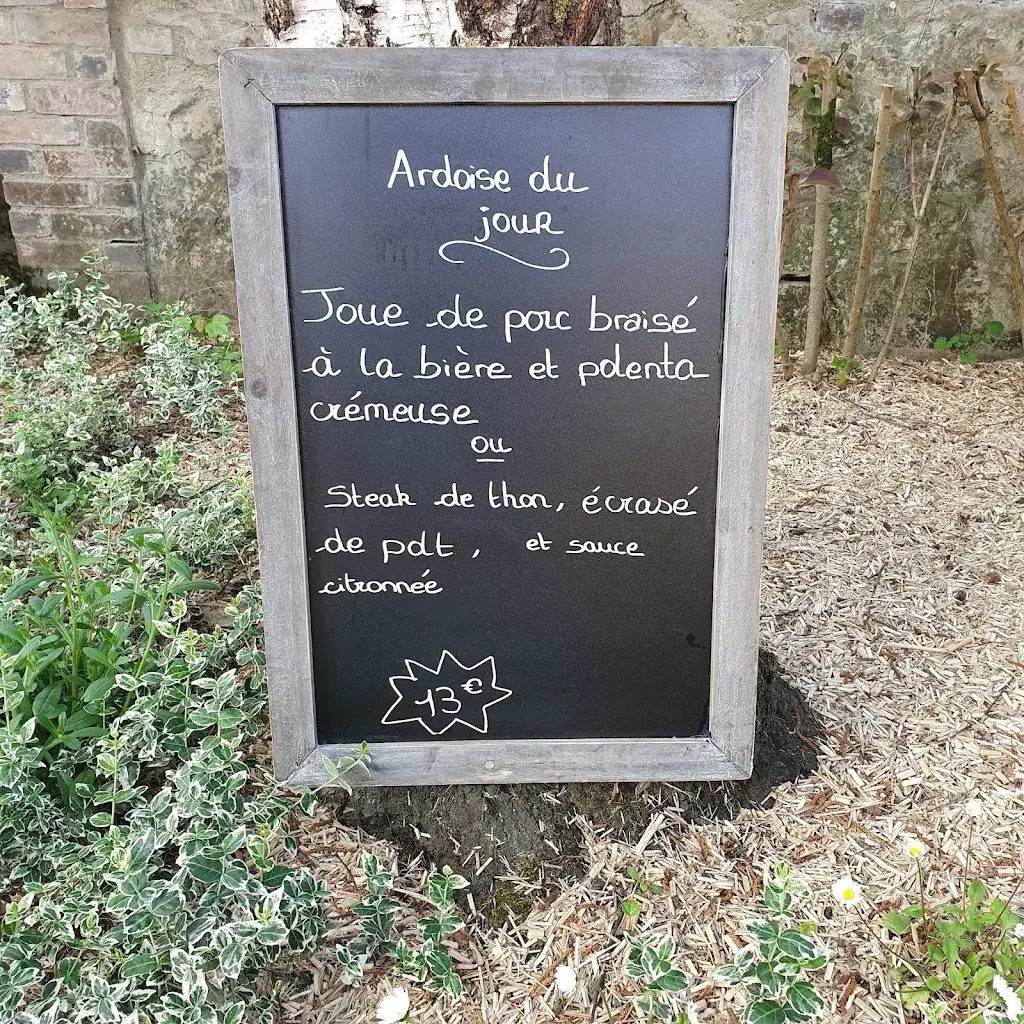 Ardoise du
jour
Joue de porc braisé
à la bière et polenta
crémeuse
ou
Steak de thon, écrasé
de pdt, et sauce
citronnée
13€